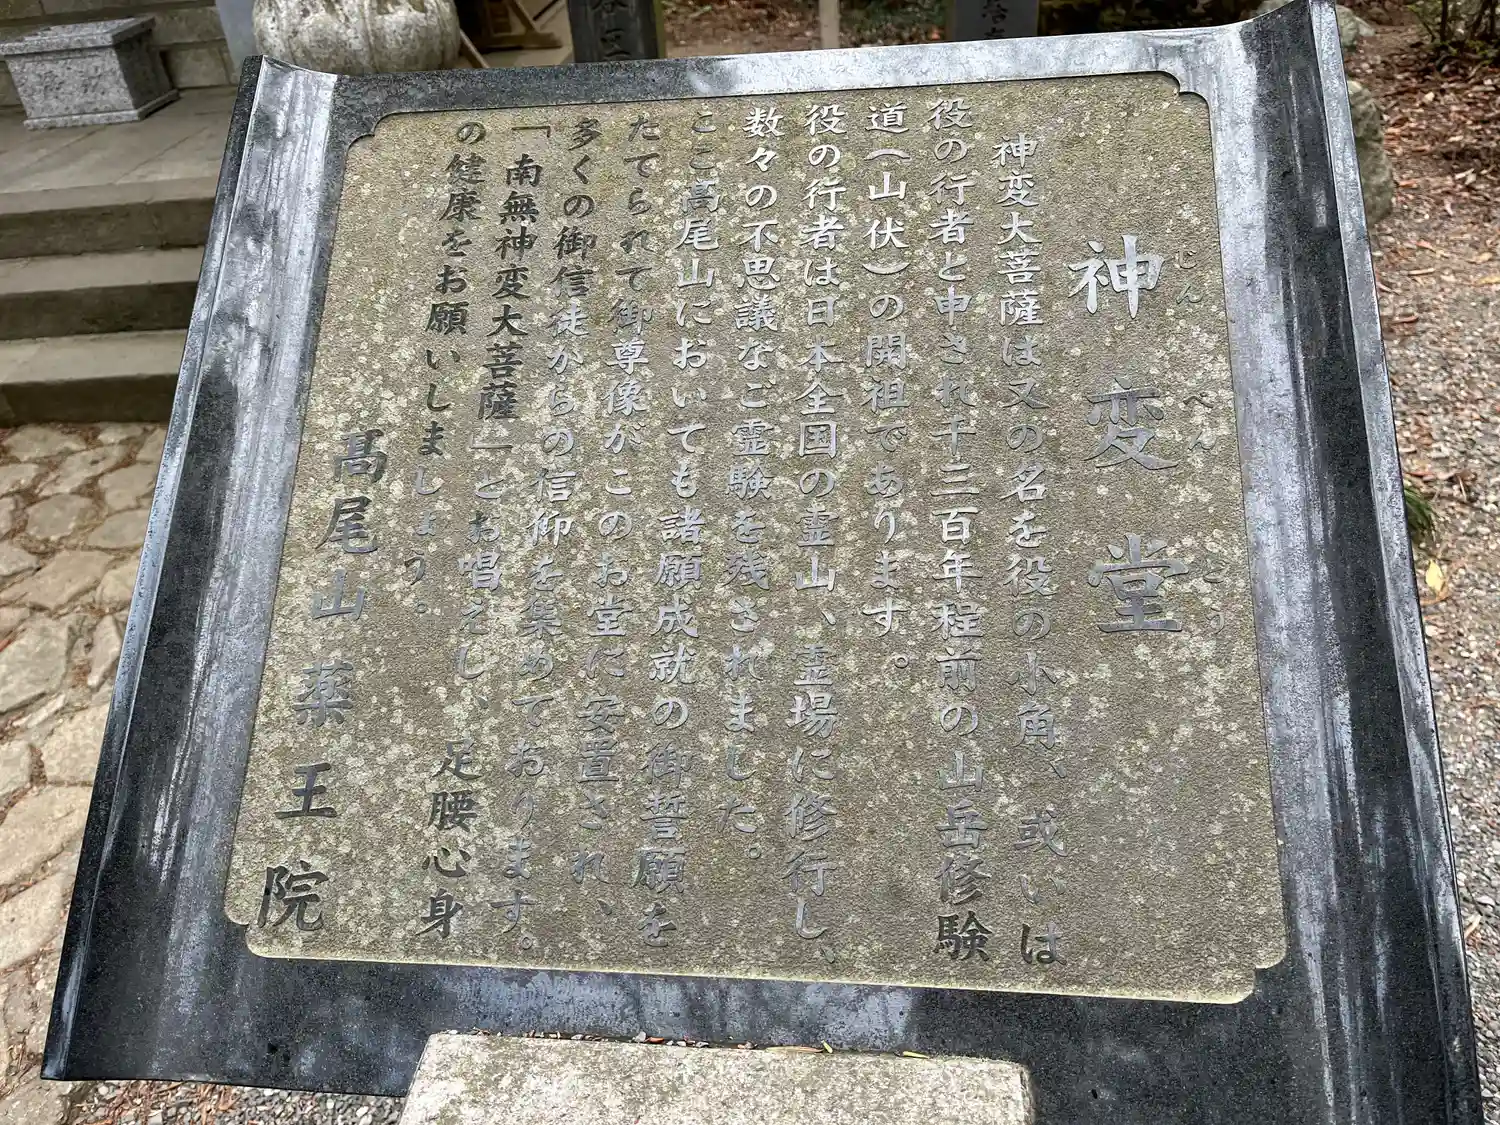 神変堂
じんべんどう
神変大菩薩は又の名を役の小角、或いは
役の行者と申され千三百年程前の山岳修験
道（山伏）の開祖であります。
役の行者は日本全国の霊山、霊場に修行し、
数々の不思議なご霊験を残されました。
ここ髙尾山においても諸願成就の御誓願を
たてられて御尊像がこのお堂に安置され、
多くの御信徒からの信仰を集めております。
「南無神変大菩薩」とお唱えし、足腰心身
の健康をお願いしましょう。
髙尾山薬王院